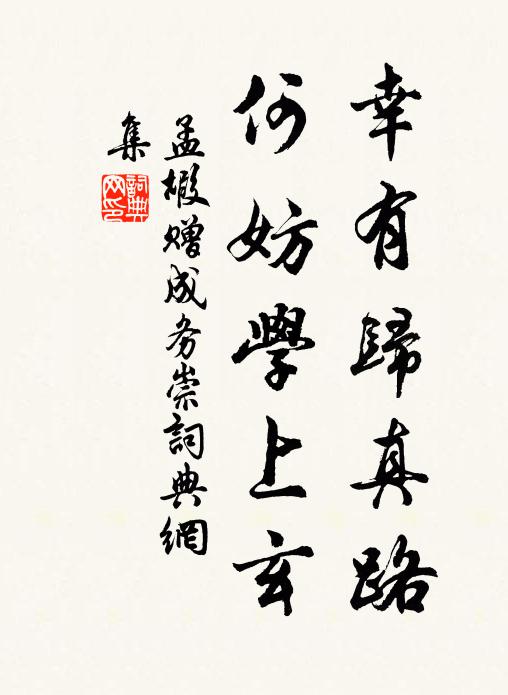 幸有歸真路
何妨學上玄
孟椵贈成务崇詞典網
集
詞典网印